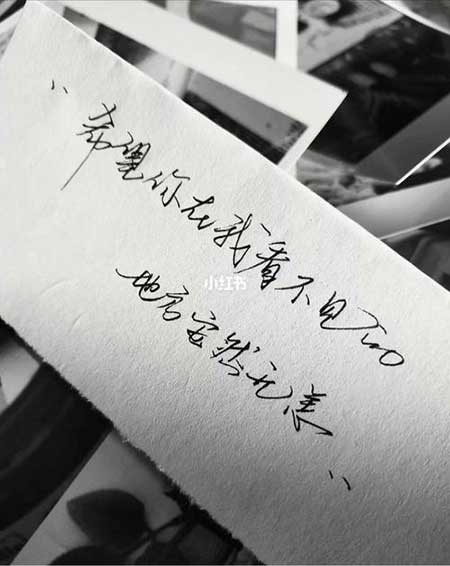 “希望你在我看不见的
地方安然无恙”
小红书